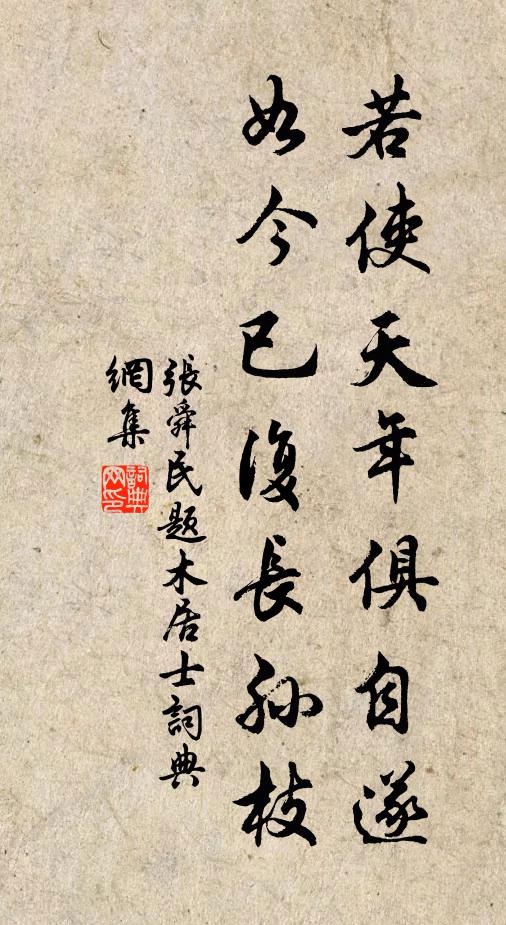 若使天年俱自遂
如今已復長孫枝
張舜民題木居士詞典
網集
詞典
网印